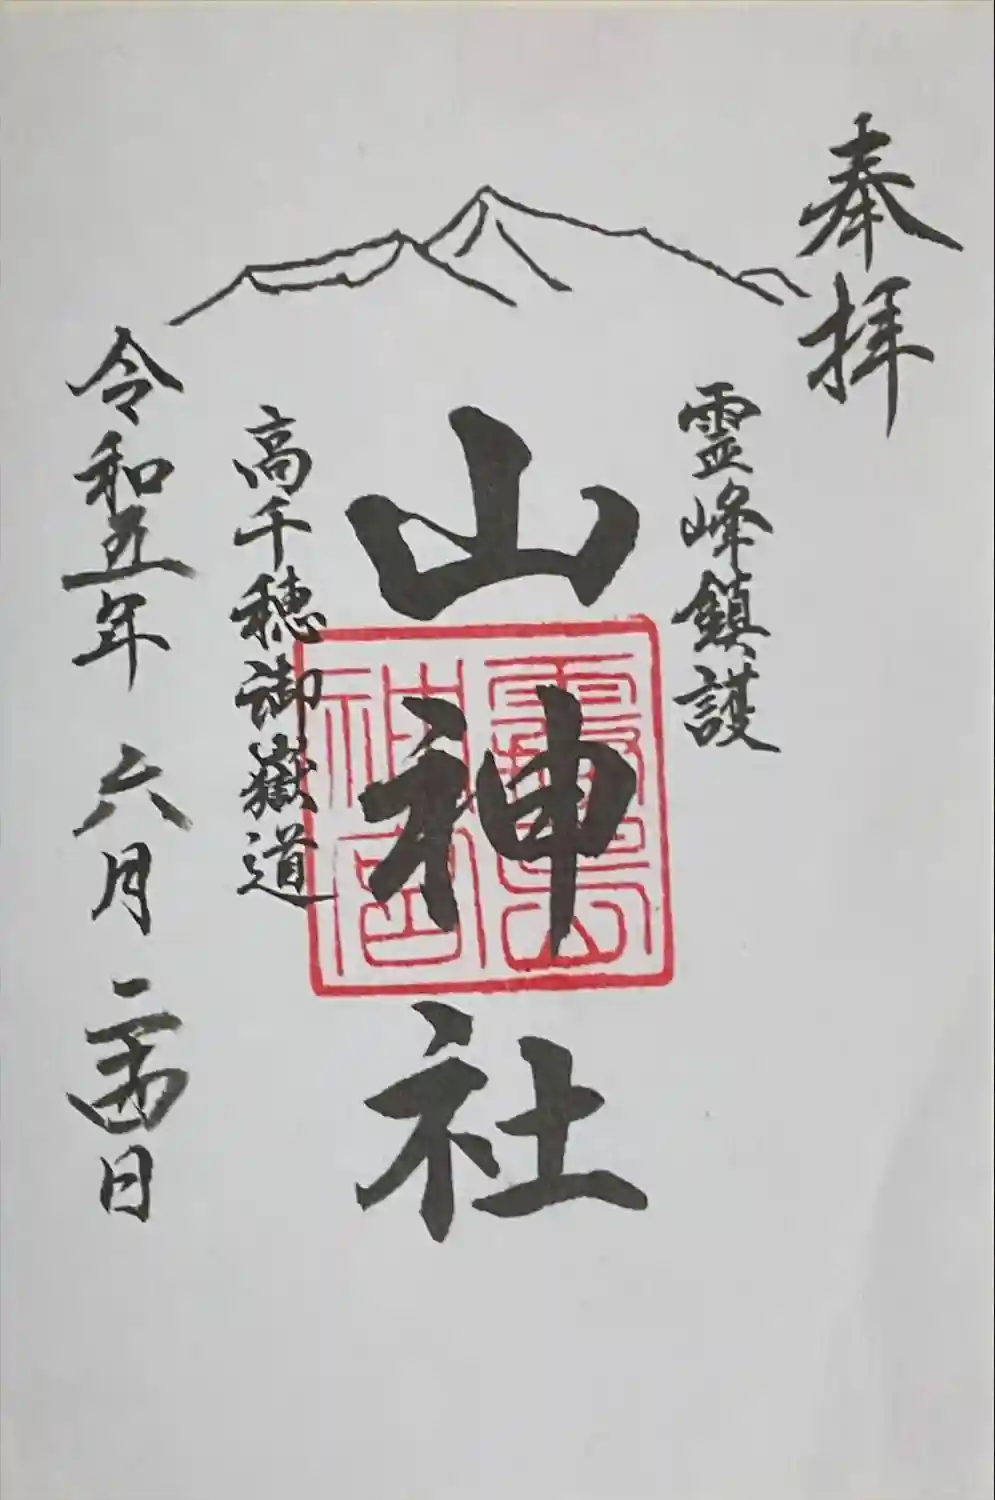 奉拝
霊峰鎮護
山神社
霧島
神宮
高千穂御嶽道
令和五年 六月 二十四日